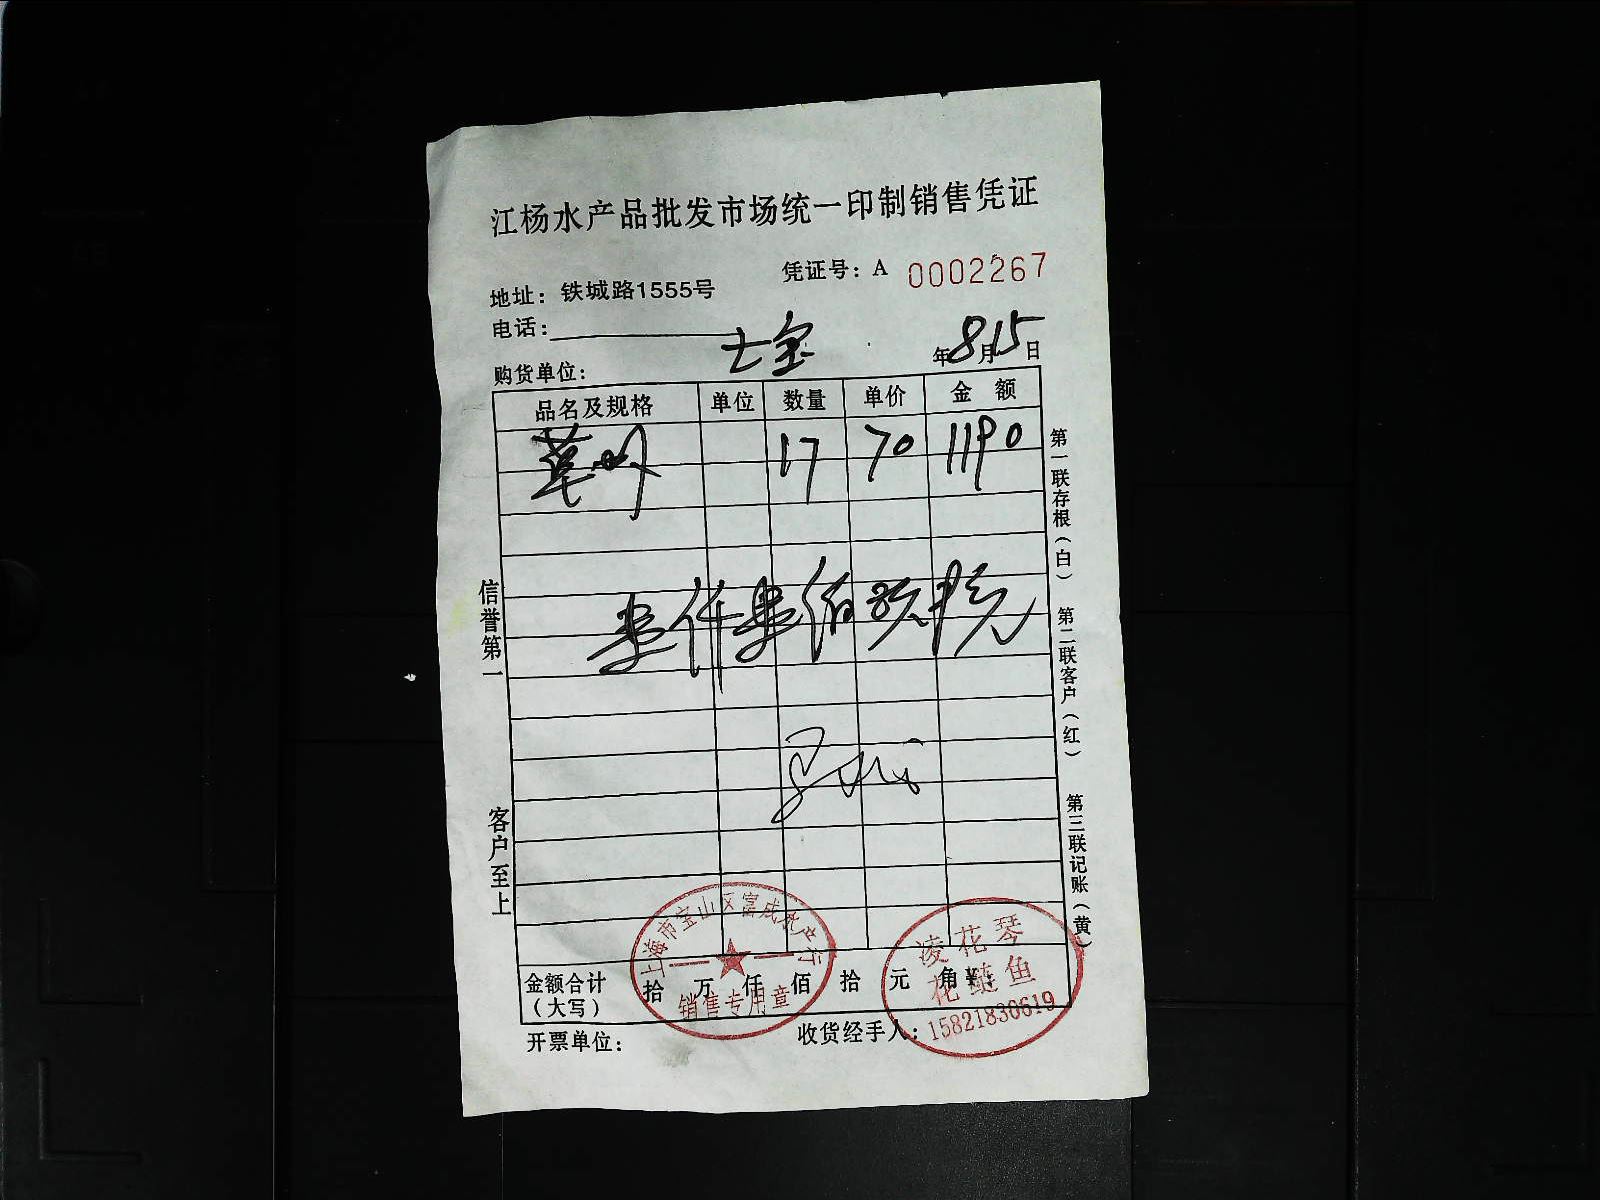 江杨水产品批发市场统一印制销售凭证
凭证号：A 0002267
地址：铁城路1555号
电话：
年8月15日
购货单位：
品名及规格 单位 数量 单价 金 额
17 70 1190
壹仟壹佰玖拾元
信誉第一
客户至上
第一联存根（白） 第二联客户（红） 第三联记账（黄）
上海市宝山区富成水产行
销售专用章
凌花琴
花鲢鱼
15821830619
金额合计（大写） 拾 万 仟 佰 拾 元 角 ¥：
开票单位： 收货经手人：